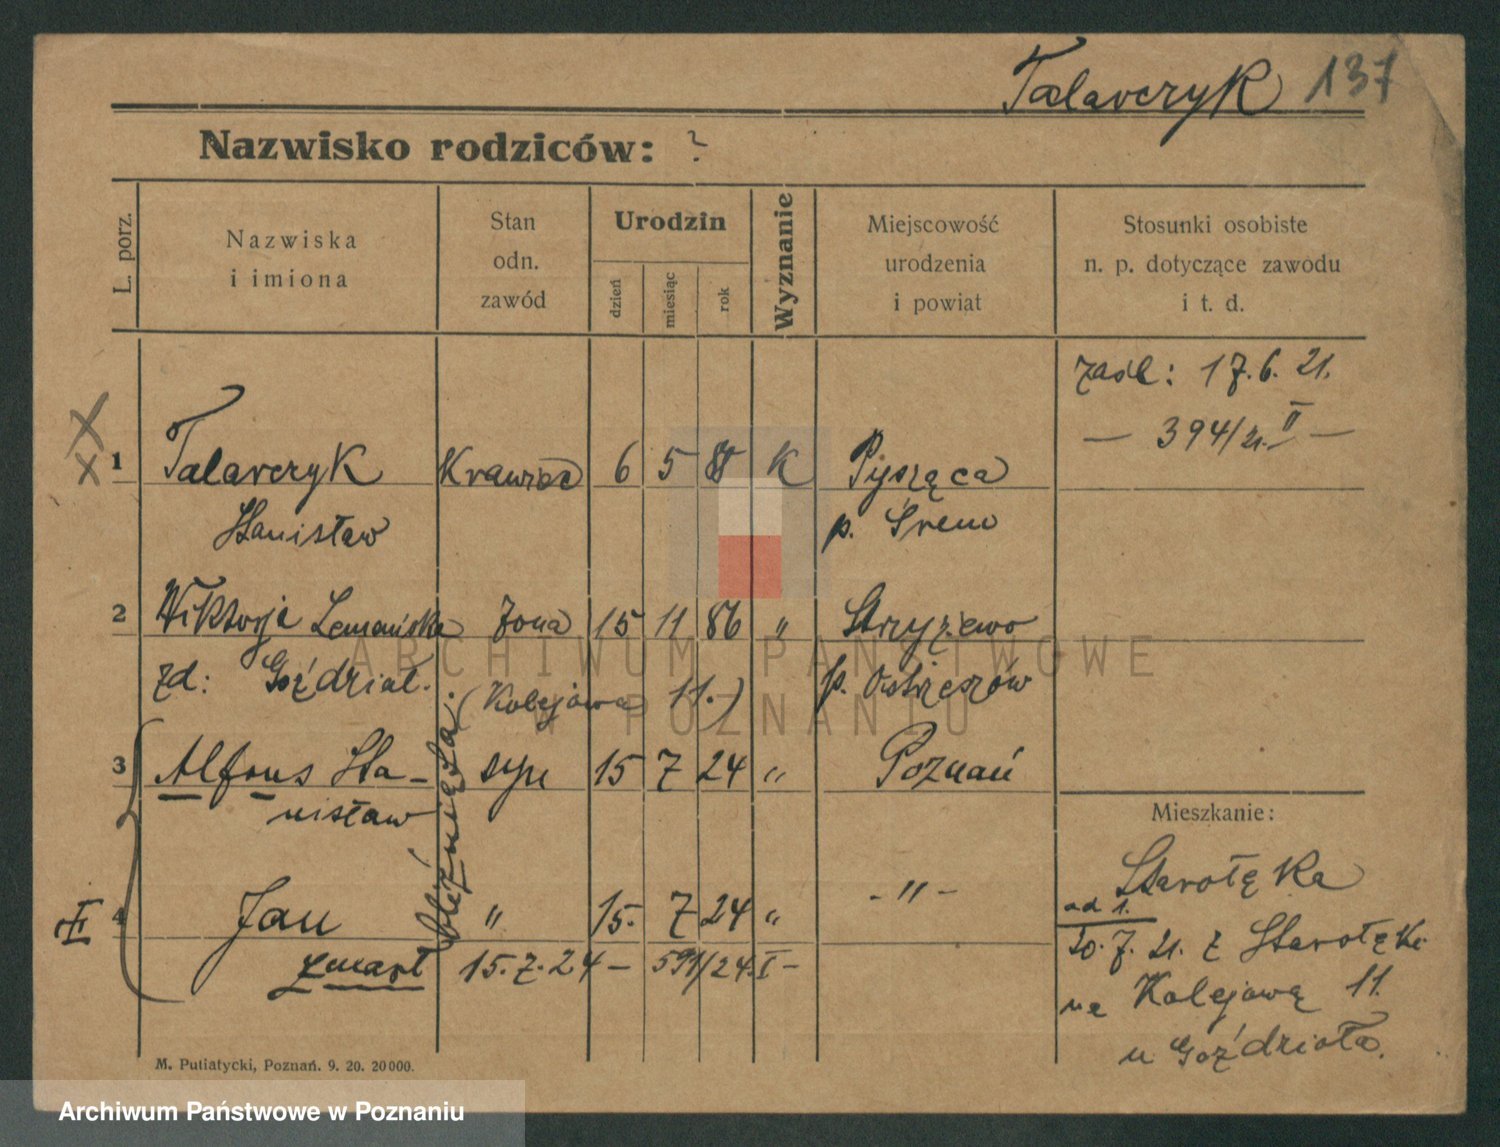 Talarczyk 137
Nazwisko rodziców: ?
L. porz.
Nazwiska
i imiona
Stan
odn.
zawód
Urodzin
dzień
miesiąc
rok
Wyznanie
Miejscowość
urodzenia
i powiat
Stosunki osobiste
n. p. dotyczące zawodu
i t. d.
zaśl: 17.6.21.
— 394/21. II —
1 Talarczyk Krawiec 6 5 K Pysząca
Stanisław p. Śrem
2 Wiktorja Lemańska żona 15 11 86 " Strzyżewo
zd: Goździał. (Kolejowa 11.) p. Ostrzeszów
3 Alfons Sta- syn 15 7 24 " Poznań
nisław
bliźnięta.
II 4 Jan " 15. 7 24 " -"-
zmarł 15.7.24 — 591/24.I —
Mieszkanie:
Starołęka
ad 1.
20.7.21. z Starołęki
na Kolejową 11.
u Goździała.
M. Putiatycki, Poznań. 9. 20. 20000.
ARCHIWUM PAŃSTWOWE
W POZNANIU
Archiwum Państwowe w Poznaniu